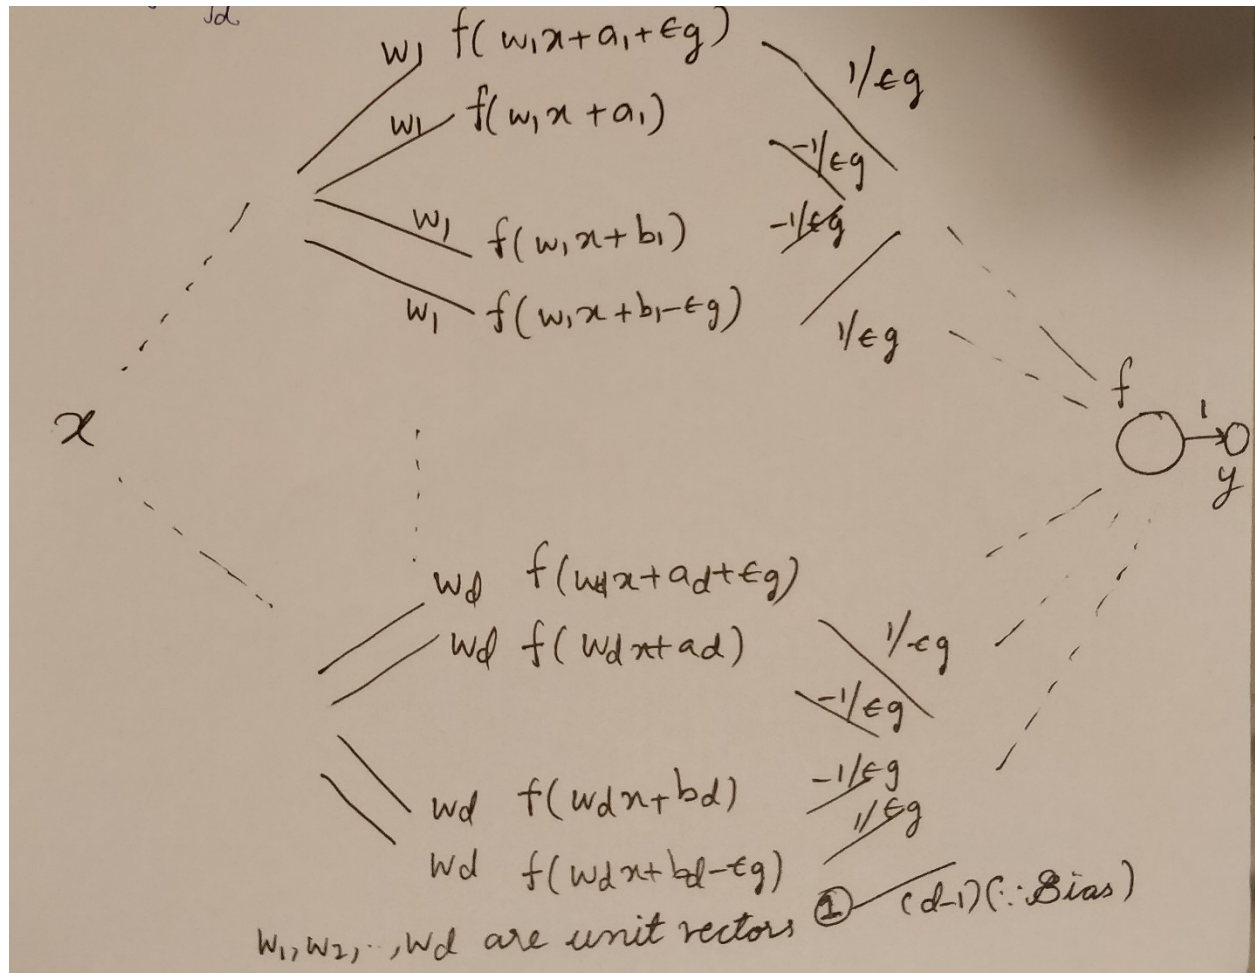 d
w1 f(w1x+a1+εg)
1/εg
w1 f(w1x+a1)
-1/εg
w1 f(w1x+b1)
-1/εg
w1 f(w1x+b1-εg)
1/εg
x
f
1
y
wd f(wdx+ad+εg)
1/εg
wd f(wdx+ad)
-1/εg
wd f(wdx+bd)
-1/εg
wd f(wdx+bd-εg)
1/εg
1 (d-1)(∵Bias)
w1,w2,..,wd are unit vectors